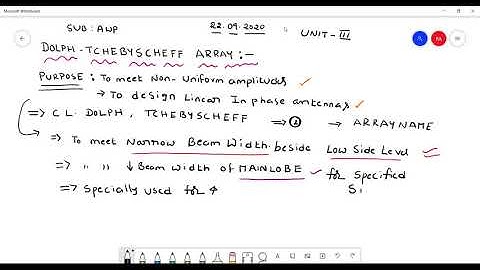 Microsoft Whiteboard
SUB: AWP
22.09.2020
UNIT-III
DOLPH-TCHEBYSCHEFF ARRAY:-
PURPOSE: To meet Non-Uniform amplitudes ✓
→ To design Linear In phase antennas ✓
=> C L. DOLPH, TCHEBYSCHEFF => ② → ARRAY NAME
=> To meet Narrow Beam Width beside Low Side Level
=> " " ↓ Beam width of MAINLOBE ✓ for specified
=> Specially used for ↑ S